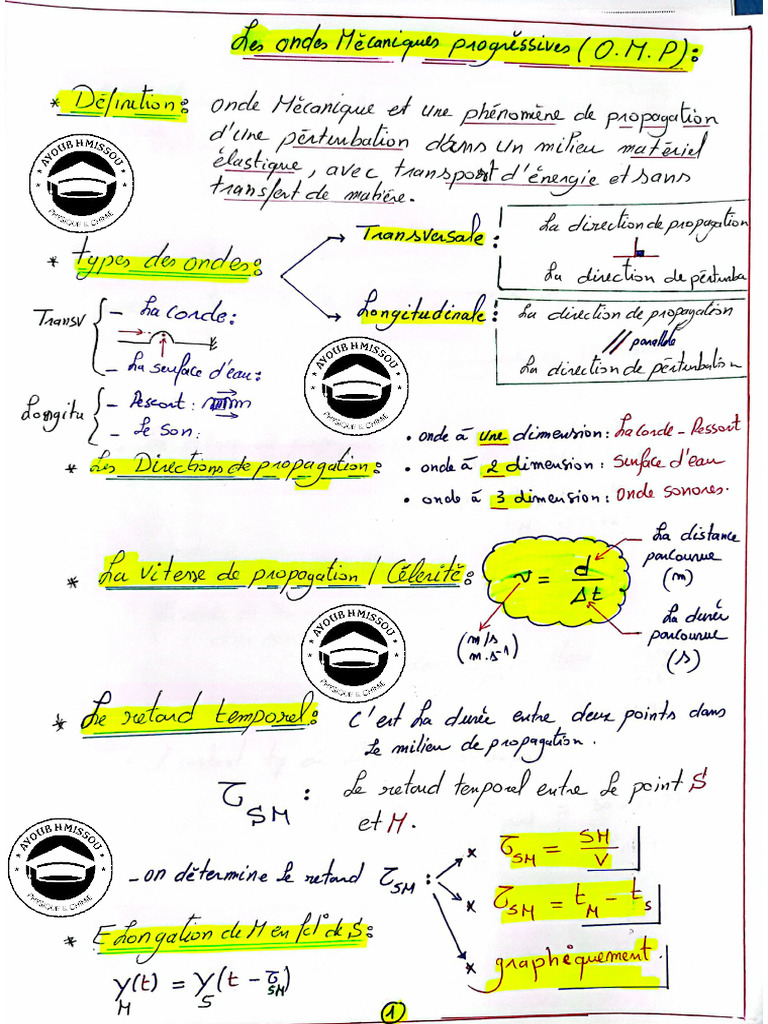 Les ondes Mĕcaniques progrĕssives (O.M.P):
* Dĕfinition: onde Mĕcanique et une phénomène de propagation
d'une pĕrturbation dans un milieu matĕriel
élastique, avec transport d'énergie et sans
transfert de matière.
AYOUB HMISSOU
PHYSIQUE & CHIMIE
* types des ondes:
Transversale:
La direction de propagation
La direction de pĕrturba
Longitudinale:
La direction de propagation
// parallèle
La direction de pĕrturbation
Transv
- La corde:
- La surface d'eau:
Longitu
- Ressort:
- Le son:
AYOUB HMISSOU
PHYSIQUE & CHIMIE
* Les Directions de propagation:
• onde à une dimension: La corde - Ressort
• onde à 2 dimension: Surface d'eau
• onde à 3 dimension: Onde sonores.
* La vitesse de propagation / Célerité:
v = d / Δt
La distance
parcourue
(m)
La durée
parcourue
(s)
(m/s
m.s⁻¹)
AYOUB HMISSOU
PHYSIQUE & CHIMIE
* Le retard temporel: C'est La durée entre deux points dans
Le milieu de propagation.
τ_SM : Le retard temporel entre Le point S
et M.
AYOUB HMISSOU
PHYSIQUE & CHIMIE
- on détermine Le retard τ_SM:
* τ_SM = SM / V
* τ_SM = t_M - t_S
* graphéquement.
* Elongation de M en fct° de S:
y_M(t) = y_S(t - τ_SM)
1